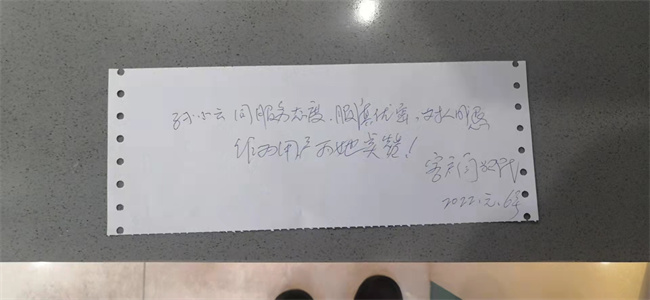 孙小云同服务态度、服务优密、对人诚恳
作为用户为她点赞！
客户
2022.元.6号